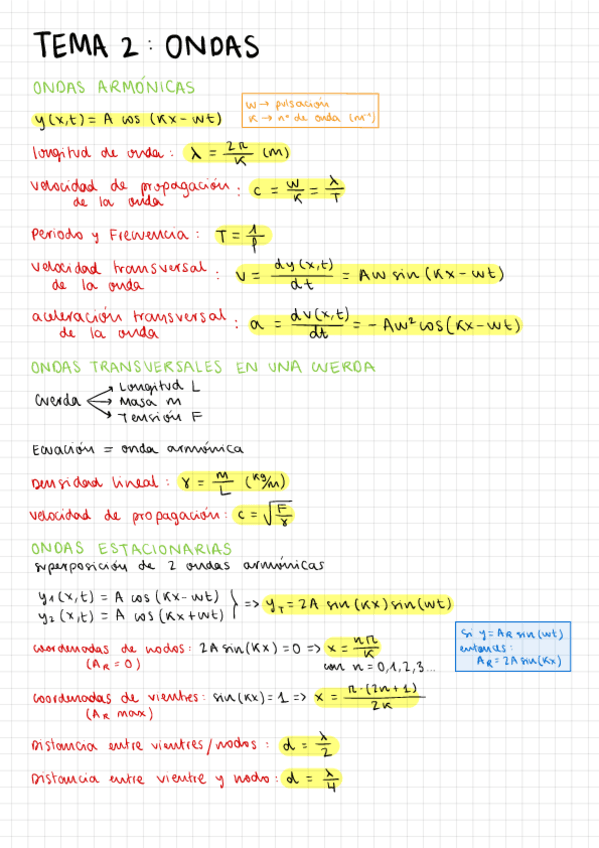 TEMA 2: ONDAS
ONDAS ARMÓNICAS
y(x,t) = A cos (Kx - wt)
w → pulsación
K → nº de onda (m⁻¹)
longitud de onda: λ = 2π/K (m)
velocidad de propagación de la onda: c = w/K = λ/T
Periodo y Frecuencia: T = 1/f
velocidad transversal de la onda: v = dy(x,t)/dt = Aw sin (Kx - wt)
aceleración transversal de la onda: a = dv(x,t)/dt = - Aw² cos (Kx - wt)
ONDAS TRANSVERSALES EN UNA CUERDA
Cuerda → Longitud L
→ Masa m
→ Tensión F
Ecuación = onda armónica
Densidad lineal: γ = m/L (Kg/m)
velocidad de propagación: c = √(F/γ)
ONDAS ESTACIONARIAS
superposición de 2 ondas armónicas
y₁(x,t) = A cos (Kx - wt)
y₂(x,t) = A cos (Kx + wt) } => y_T = 2A sin (Kx) sin (wt)
Si y = A_R sin (wt)
entonces:
A_R = 2A sin (Kx)
coordenadas de nodos: 2A sin (Kx) = 0 => x = nπ/K
(A_R = 0) con n = 0,1,2,3...
coordenadas de vientres: sin (Kx) = 1 => x = π·(2n+1)/2K
(A_R max)
Distancia entre vientres/nodos: d = λ/2
Distancia entre vientre y nodo: d = λ/4